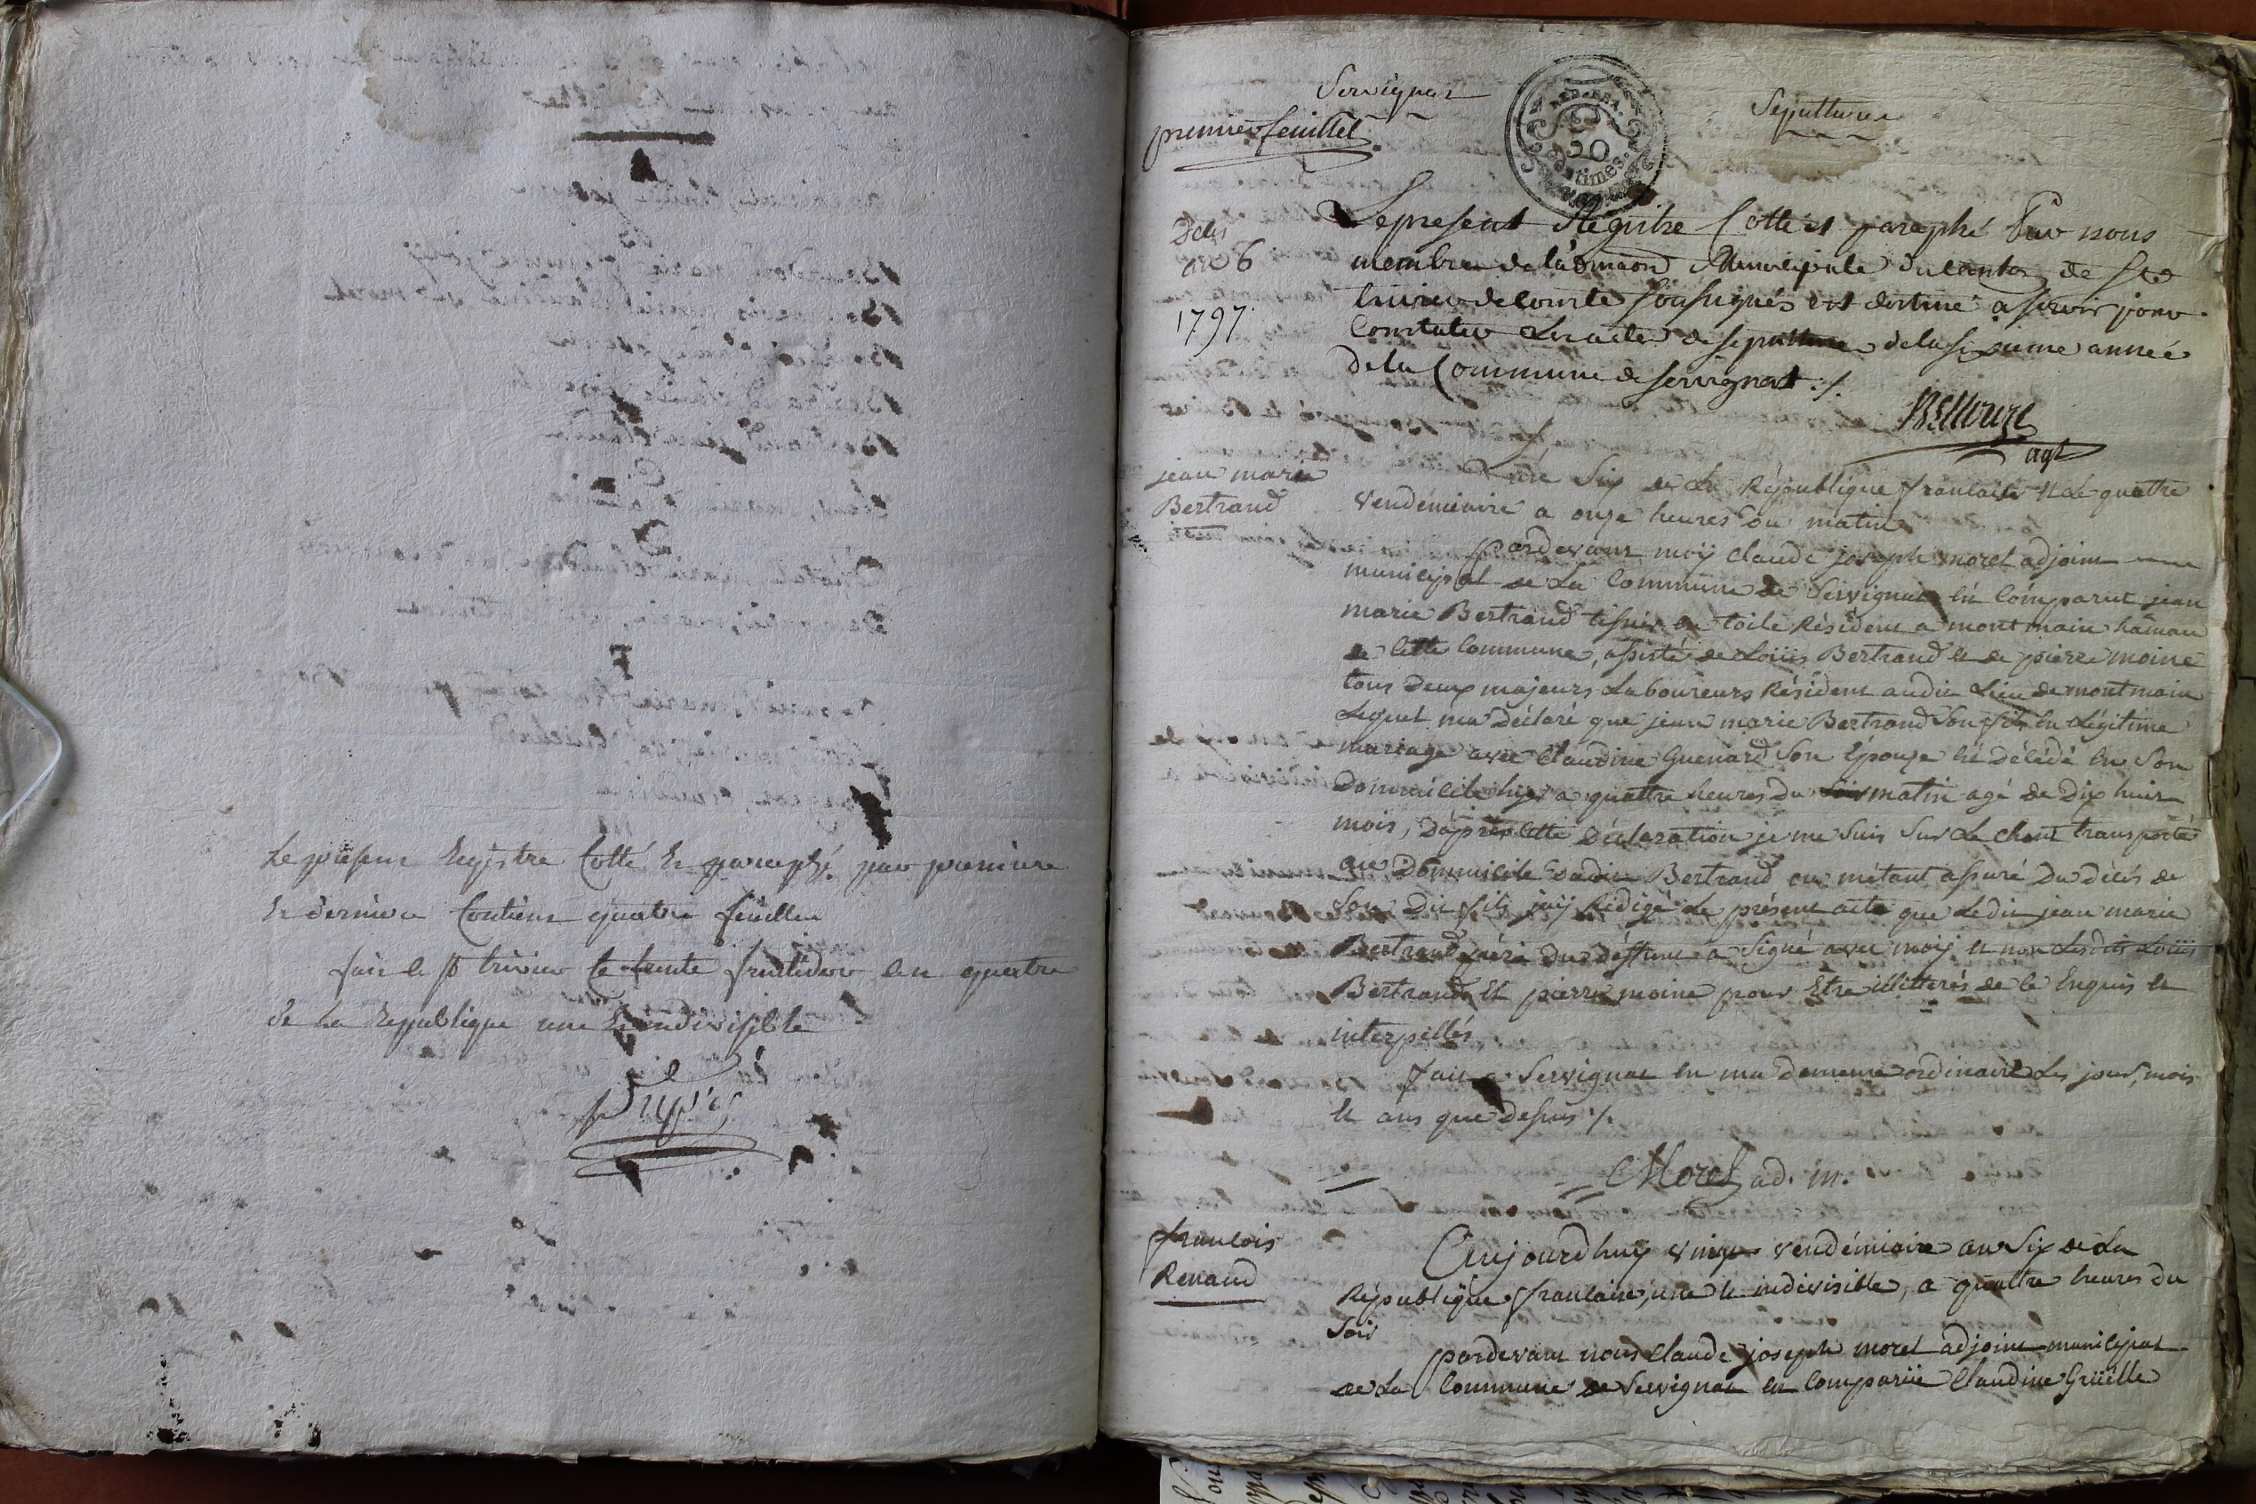 Le présent Registre Cotté et paraphé par premiere
et derniere Contient quatre feuillets
fait a st trivier le trente fructidor an quatre
de la Republique une et indivisible
Servignat
premier feuillet
Sepultures
RÉP. FRA.
50
Centimes.
Décès
an 6
1797
Le present Registre Cotté et paraphé Par nous
membre de l'admaon Municipale du canton de St
trivier de Courte Soussignés est destiné a servir pour
Constater les actes de sepultures de la sixieme année
de la Commune de servignat ./.
agt
jean marie
Bertrand
L'an Six de La République francaise et Le quattre
vendemiaire a onze heures du matin
pardevant moÿ Claude joseph morel adjoint
municipal de La Commune de Servignat est Comparut jean
marie Bertrand tissier en toile Résident a montmain hâmau
de Cette Commune, assisté de Loüis Bertrand et de pierre moine
tous deux majeurs Laboureurs Résident audit Lieu de montmain
Lequel m'a déclaré que jean marie Bertrand Son fils en Légitime
mariage avec Claudine Guenard Son Epouze est décédé en Son
Dommicile hÿer a quattre heures du matin agé de Dix huit
mois, D'après Cette Déclaration je me Suis Sur Le Chant transporté
au Dommicile dudit Bertrand ou m'étant assuré du décès de
Son Dit fils j'aÿ Rédigé Le présent acte que Ledit jean marie
Bertrand pére du déffunt a Signé avec moÿ et non Lesdits Loüis
Bertrand et pierre moine pour Etre illittérés de Ce Enquis et
interpellés
fait a Servignat en ma demeure ordinaire Les jour, mois
et ans que dessus ./.
CMorel ad. m.
francois
Renaud
Aujourdhuÿ vingt vendémiaire an Six de La
République francaise, une et indivisible, a quattre heures du
Soir
pardevant nous Claude joseph morel adjoint municipal
de La Commune de Servignat est Comparüe Claudine Grüelle